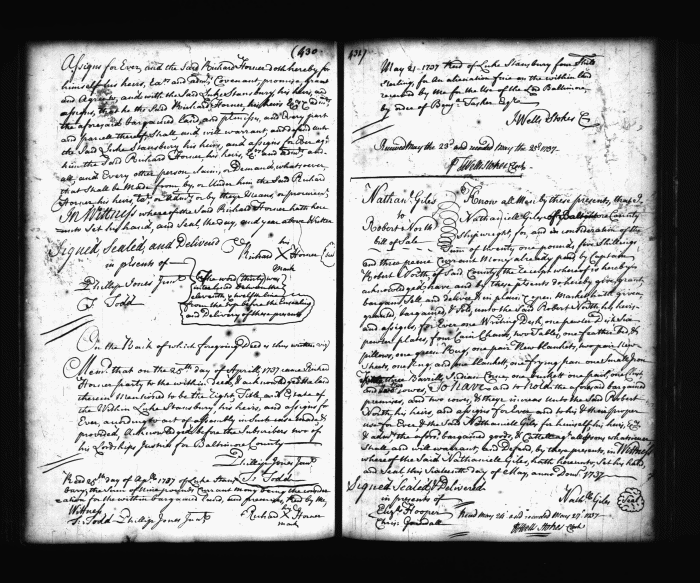 (430
Assigns for Ever, and the Said Richard Horner doth hereby for
himself his heirs, Exrs and admrs Covenant, promise, grant
and Agree, to and with the Said Luke Stansbury, his heirs, and
assigns, that he the Said Richard Horner, his heirs Exrs & admrs
the aforesaid bargained Land and premises, and Every part
and parcell thereof Shall and will warrant, and defend unto
the Said Luke Stansbury his heirs, and assigns for Ever against
him the Said Richard Horner, his heirs, Exrs and admrs, and
all, and Every other person claim, or Demand, whatsoever
that Shall be Made from, by, or Under him the Said Richard
Horner his heirs, Exrs or admrs or by their Means or procurement
In Witness whereof the Said Richard Horner hath here
unto Set his hand, and Seal the day, and year above Written
Signed, Sealed, and Delivered
in presents of
Richard X Horner
his
mark
Phillip Jones Junr
T. Todd
The word (thirty) was
interlined between the
and
line
from the top before the Ensealing
and Delivery of these presents
On the Back of which foregoing Deed is thus written, viz
Memd. that on the 25th day of Aprill, 1737 came Richard
Horner party to the within Deed, & acknowledged the Land
therein Mentioned to be the Right, Title, and Estate of
the Within Luke Stansbury, his heirs, and assigns for
Ever, according to act of assembly in Such case made &
provided, Acknowledged before the Subscribers two of
his Lordships Justices for Baltimore County
Phillip Jones Junr
T. Todd
Recd 25th day of Aprl. 1737 of Luke Stans
bury, the Sum of
Currant Mony being the consider
ation for the within bargained Land, and premises, Recd by Me,
Witness
T. Todd Phillip Jones Junr
Richard X Horner
mark
431)
May 21. 1737 Recd of Luke Stansbury four Shills
Sterling, for an alienation fine on the within Land
received by me for the Use of the Ld Baltimore,
by order of Benj. Tasker Esqr
J Wells Stokes C
Received May the 23d and recorded May the 25th 1737.
P J Wells Stokes Clerk
Nathanl Giles
to
Robert North
bill of Sale
Know all Men by these presents, that I
Nathaniell Giles of Baltimore County
Shipwright, for, and in consideration of the
Sum of twenty one pounds, five Shillings
and three pence Currant Money already paid by Captain
Robert North, of Said County, the Receipt whereof is hereby
acknowledged, have and by these presents do hereby give, grant
bargain Sell, and deliver in plain Open Market hath given
granted, bargained & Sold, unto the Said Robert North, his heirs
and assigns, for Ever one Writing Desk, one pewter Dish Six
pewter plates, four Cain Chairs, two Tables, one feather Bed &
pillows, one green Rug, one pair New Blankets, two pair new
Sheets, one Ring, and one Blanketts, one frying pan one Small Iron
three Barrills Indian Corn one bucket one pail
two Cowes, To have and to hold the aforesaid bargained
premises, and two cowes, & theire increase unto the Said Robert
North, his heirs, and assigns for Ever and to his & their proper
use for Ever & the Said Nathaniell Giles for himself his heirs, Exrs
& admrs the aforsd bargained goods, & Cattle agt all persons whatsoever
Shall, and will warrant, and Defend, by these presents, in Witness
whereof the Said Nathaniell Giles, hath hereunto, Set his hand
and Seal, this Sixteenth day of May, anno Domi 1737
Signed Sealed & Delivered
in presents of
Elizh Hooper
Nathl Giles
Seal
Recd May 24th and recorded May 27th 1737
J Wells Stokes Clerk